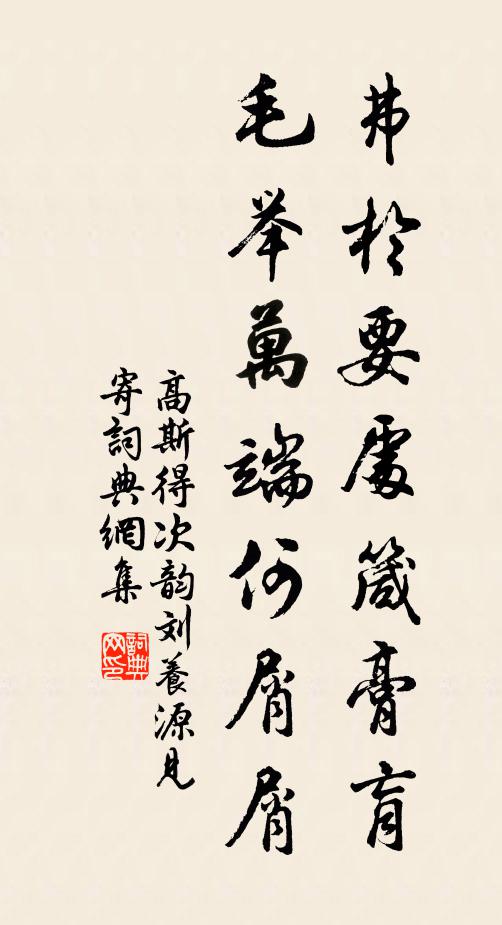 弗於要處箴膏肓
毛举萬端何屑屑
高斯得次韵刘養源見
寄詞典網集
詞典网印